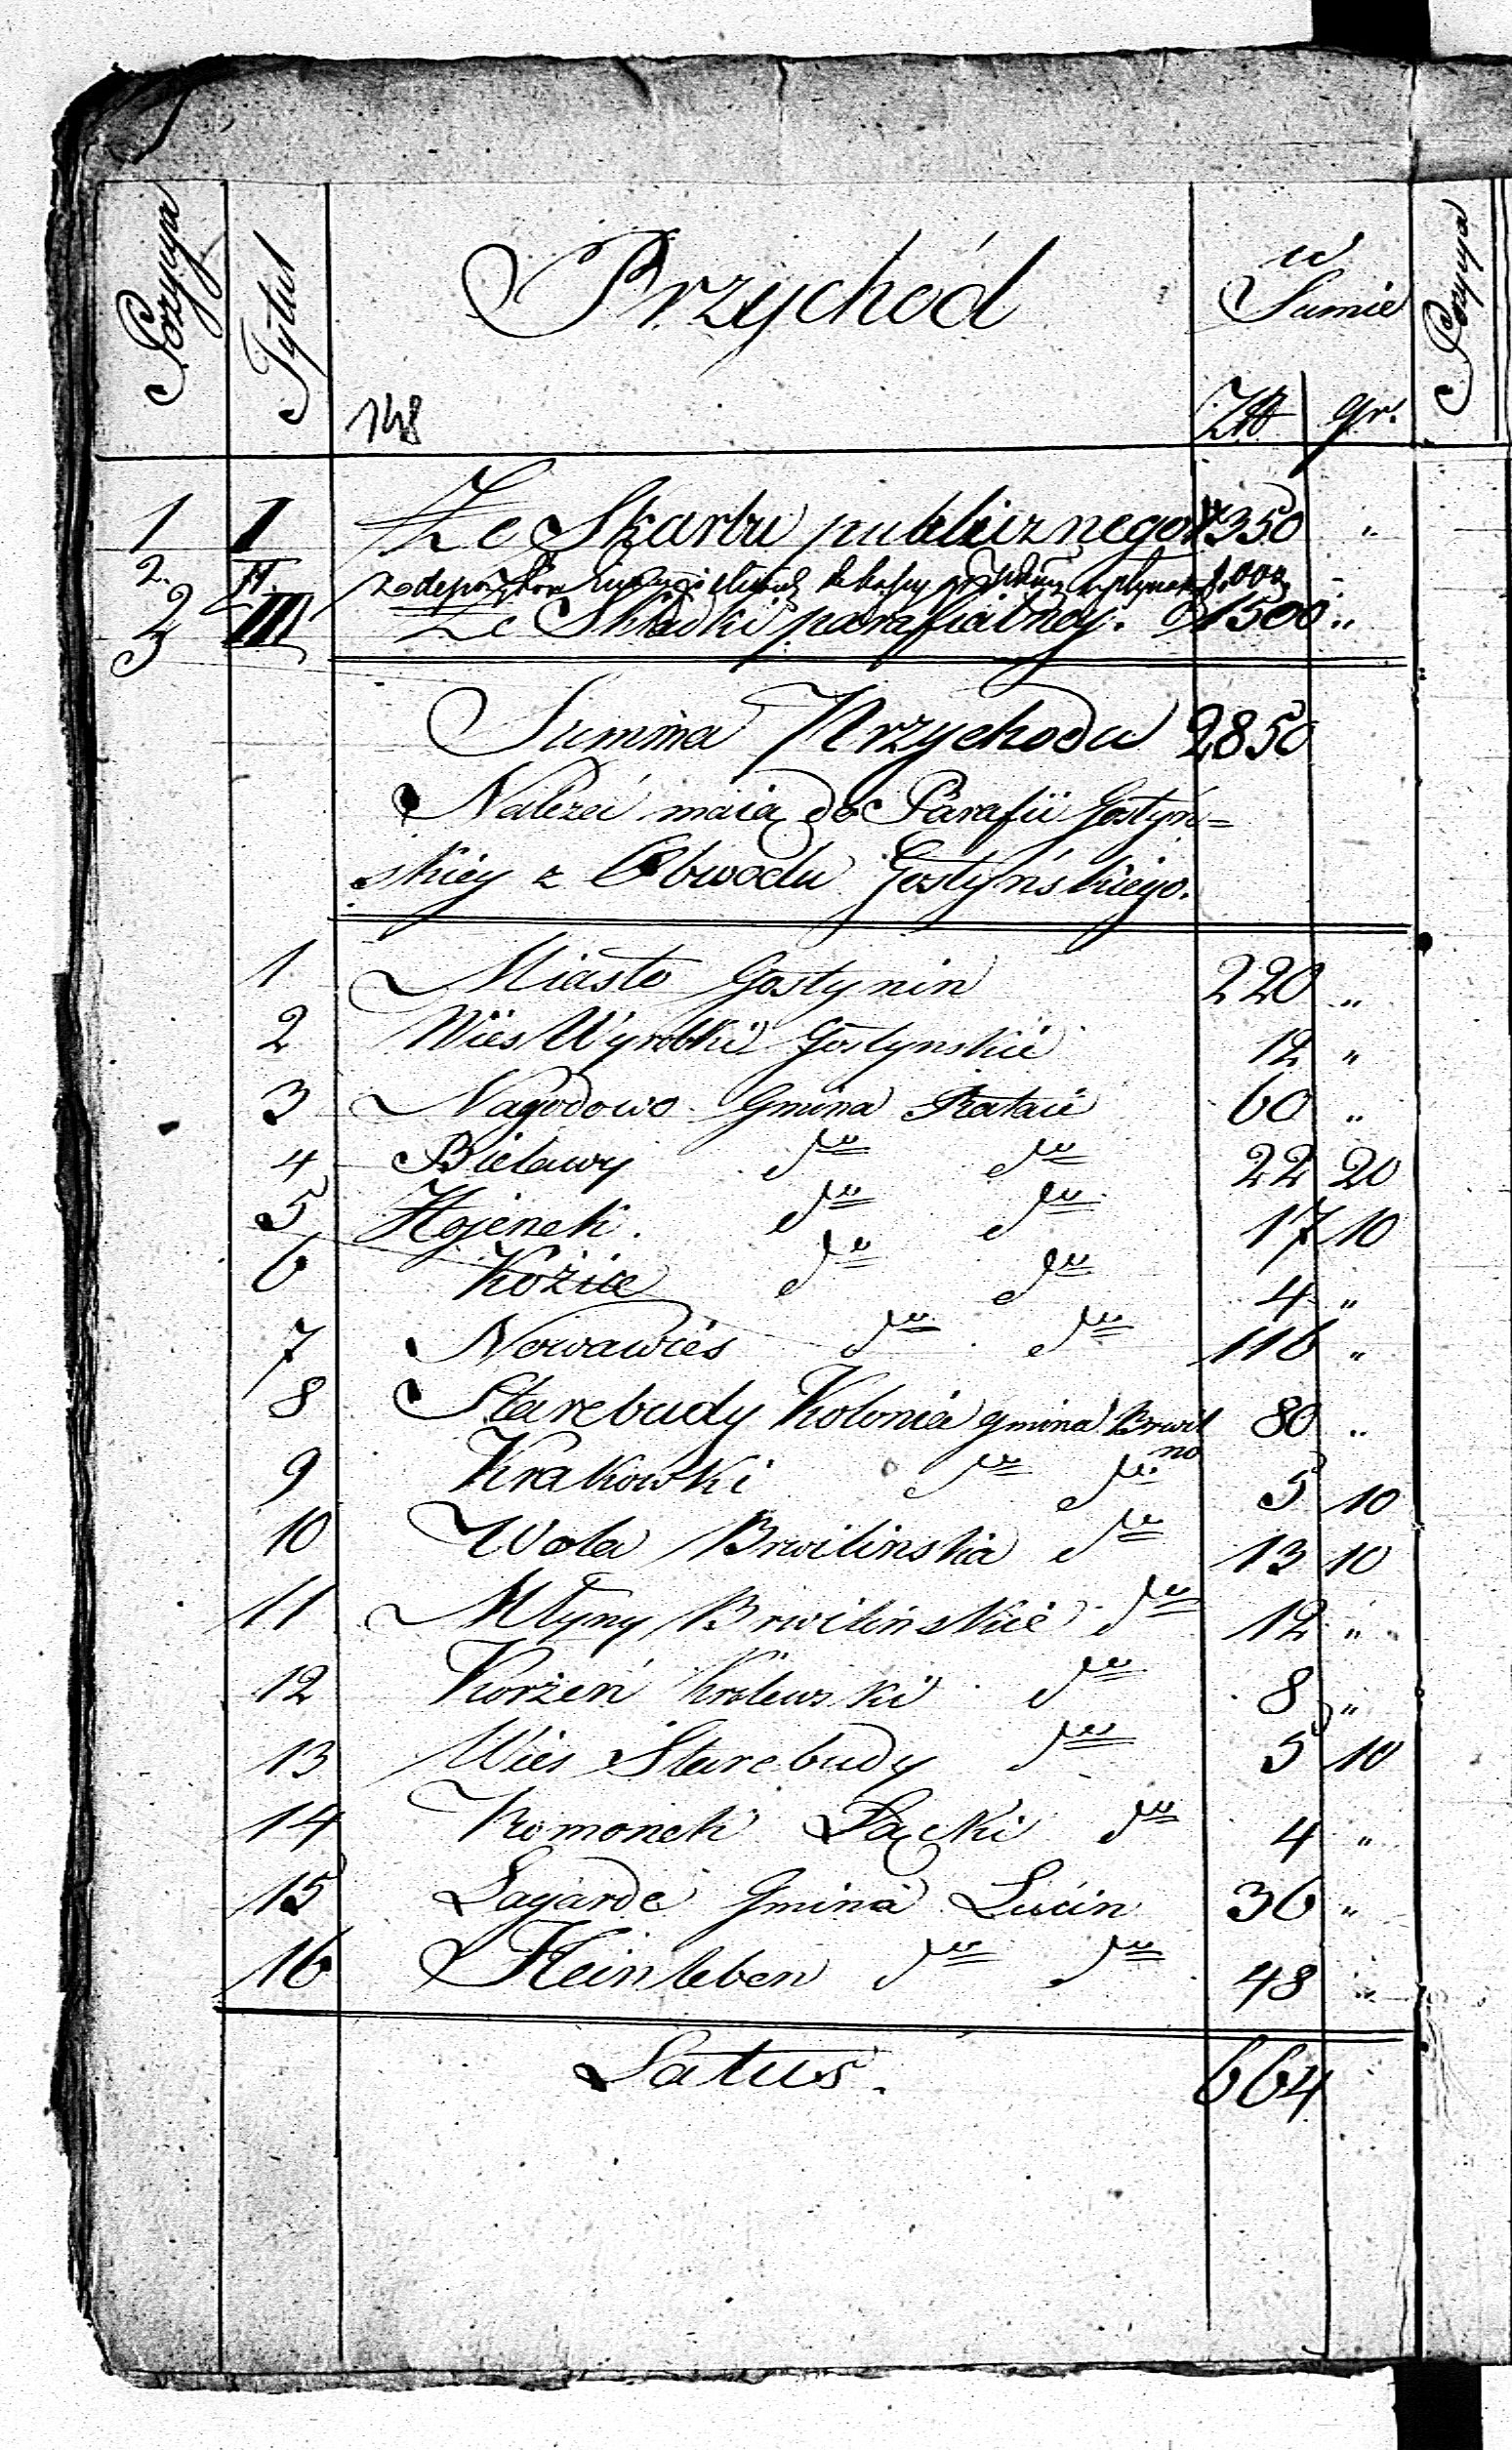 Pozycya Tytuł Przychód w Sumie Pozycya
148 Złt gr.
1 I Ze Skarbu publicznego 350 „
2. II. z do kassy 1,000 „
3 III Ze Składki parafialney. 1500 „
Summa Przychodu 2850
Należeć maią do Parafii Gostyń=
skiey z Obwodu Gostyńskiego.
1 Miasto Gostynin 220 „
2 Wieś Wyrobki Gostynskie 12 „
3 Nagodowo Gmina Rataie 60 „
4 Bielawy dto dto 22 20
5 Hojenek. dto dto 17 10
6 Kozice dto dto 4 „
7 Nowawieś dto dto 116 „
8 Starebudy Kolonia gmina Brwil
no 80 „
9 Krakowki dto dto 5 10
10 Wola Brwilinska dto 13 10
11 Młyny Brwilinskie dto 12 „
12 Korzeń Królewski dto 8 „
13 Wieś Starebudy dto 5 10
14 Komonek Łącki dto 4 „
15 Lagarde Gmina Lucin 36 „
16 Heinleben dto dto 48 „
Latus. 664